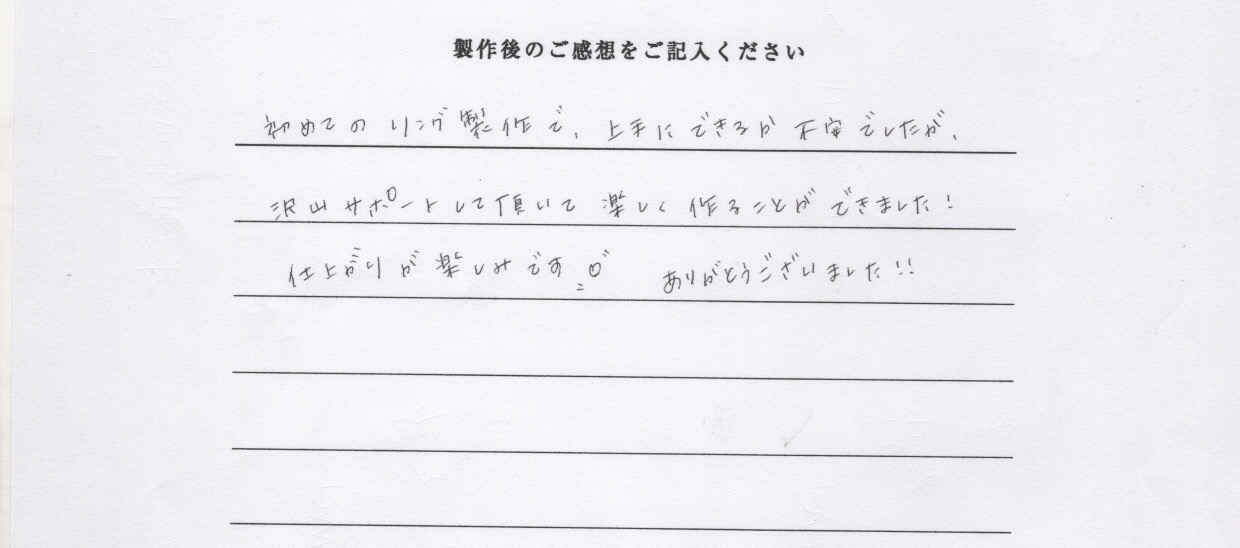 製作後のご感想をご記入ください
初めてのリング製作で、上手にできるか不安でしたが、
沢山サポートして頂いて楽しく作ることができました!
仕上がりが楽しみです ありがとうございました!!